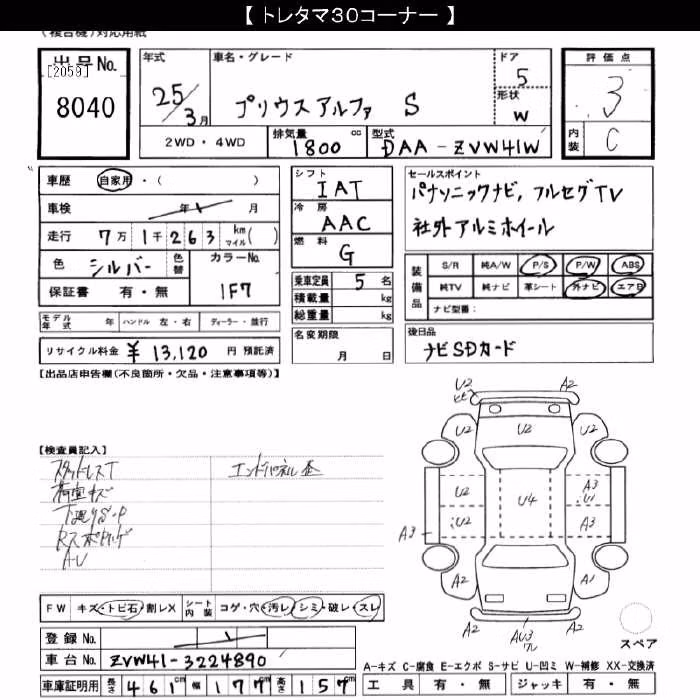 【 トレタマ30コーナー 】
(複合機)対応用紙
出品No.
[2059]
8040
年式
25/3月
車名・グレード
プリウスアルファ S
ドア
5
形状
W
評価点
3
内装
C
2WD・4WD
排気量
1800 cc
型式
DAA-ZVW41W
車歴 自家用・( )
車検 年 月
走行 7万1千263 km マイル( )
色 シルバー 色替
カラーNo. 1F7
保証書 有・無
シフト
IAT
冷房
AAC
燃料
G
乗車定員 5名
積載量 kg
総重量 kg
セールスポイント
パナソニックナビ, フルセグTV
社外アルミホイール
装備品
S/R 純A/W P/S P/W ABS
純TV 純ナビ 革シート 外ナビ エアB
ナビ型番:
モデル年式 年 ハンドル 左・右 ディーラー・並行
名変期限
月 日
後日品
ナビSDカード
リサイクル料金 ¥ 13,120 円 預託済
【出品店申告欄(不良箇所・欠品・注意事項等)】
【検査員記入】
スタッドレスT
荷室キズ
エンドパネル歪
A-U
U2 A2
U2 U2 U2
U2 U4 A3 U1
A3 U2 A3
A2 A1
A2 AU3 A2
FW キズ・トビ石・割レX
シート内装 コゲ・穴・汚レ・シミ・破レ・スレ
スペア
登録No.
車台No. ZVW41-3224890
A-キズ C-腐食 E-エクボ S-サビ U-凹ミ W-補修 XX-交換済
車庫証明用 長さ 461cm 幅 177cm 高さ 157cm
工具 有・無 ジャッキ 有・無